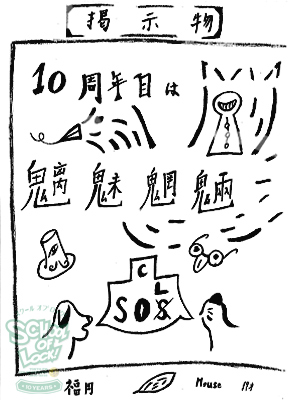 掲示物
10周年目は
魑魅魍魎
C
L
SOS
SCHOOL
OF
LOCK!
10 YEARS
福円 Mouse 17才